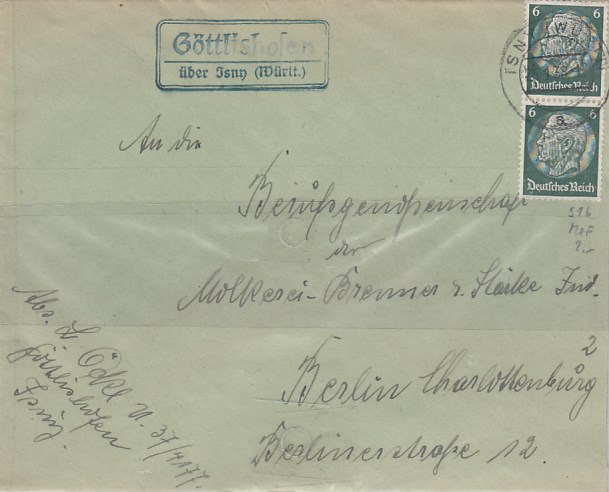 Göttlishofen
über Isny (Württ.)
ISNY (WÜRTT
6 6
Deutsches Reich
6 6
Deutsches Reich
An die
Berufsgenoßenschaft
der
Molkerei-Brenner u. Stärke Ind.
2
Berlin Charlottenburg
Berlinerstraße 12.
516
MeF
2.-
Abs. L Öckl N. 37/4177.
Göttlishofen
Isny.